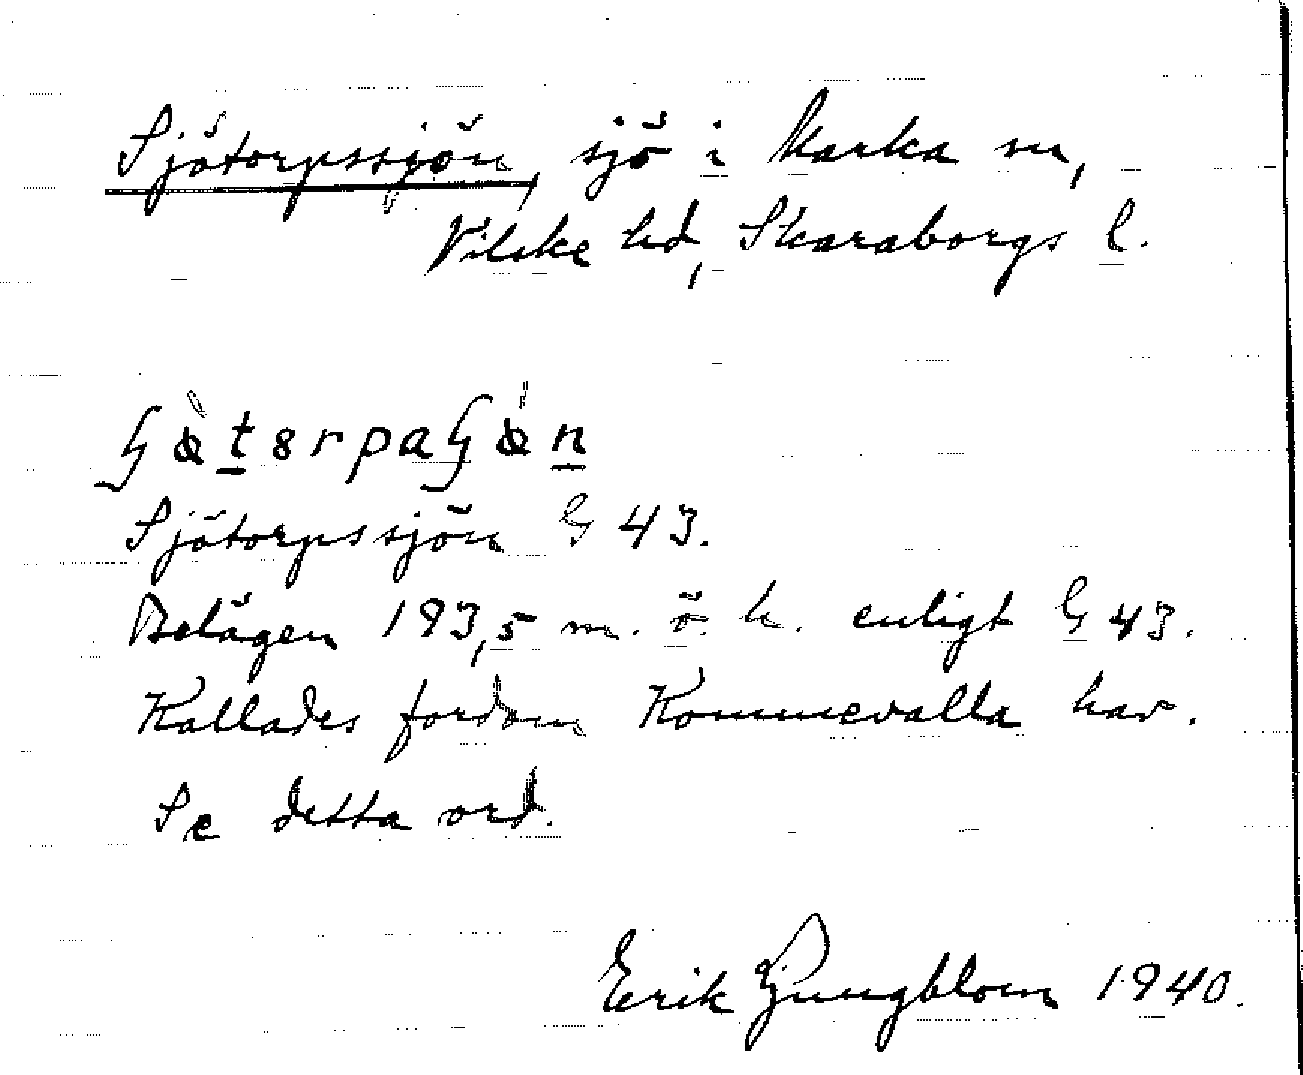 Sjötorpssjön, sjö i Karka sn,
Vilske hd, Skaraborgs l.
Sjötorpssjön G 43.
Belägen 193,5 m. ö. h. enligt G 43.
Kallades fordom Kommevalla hav.
Se detta ord.
Erik Ljungblom 1940.